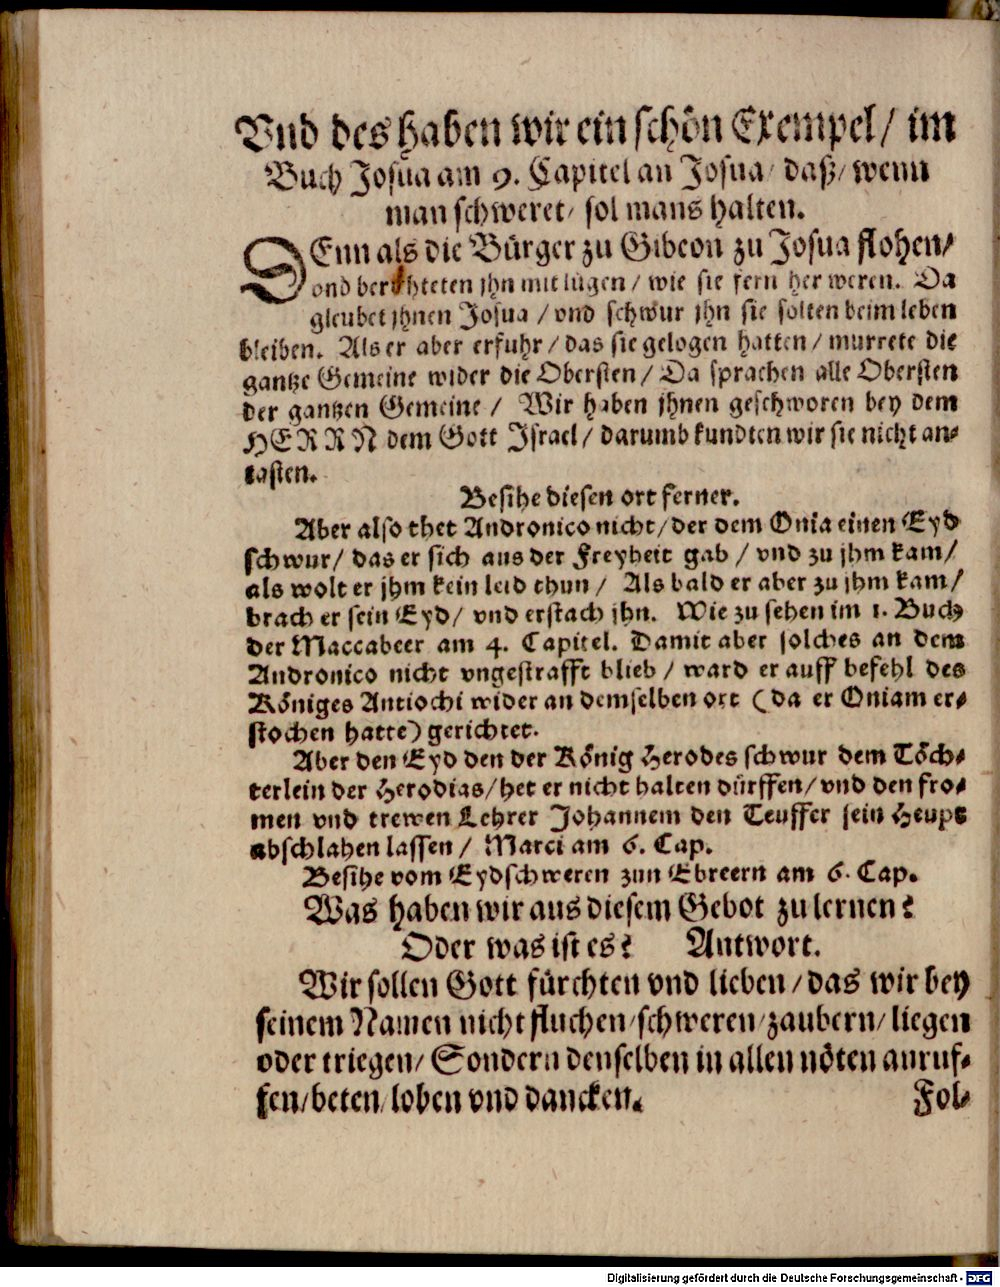 Vnd des haben wir ein schön Exempel / im
Buch Josua am 9. Capitel an Josua / daß / wenn
man schweret / sol mans halten.
DEnn als die Bürger zu Gibeon zu Josua flohen /
vnd berichteten jhn mit lügen / wie sie fern her weren. Da
gleubet jhnen Josua / vnd schwur jhn sie solten beim leben
bleiben. Als er aber erfuhr / das sie gelogen hatten / murrete die
gantze Gemeine wider die Obersten / Da sprachen alle Obersten
der gantzen Gemeine / Wir haben jhnen geschworen bey dem
HERRN dem Gott Israel / darumb kundten wir sie nicht an-
tasten.
Besihe diesen ort ferner.
Aber also thet Andronico nicht / der dem Onia einen Eyd
schwur / das er sich aus der Freyheit gab / vnd zu jhm kam /
als wolt er jhm kein leid thun / Als bald er aber zu jhm kam /
brach er sein Eyd / vnd erstach jhn. Wie zu sehen im 1. Buch
der Maccabeer am 4. Capitel. Damit aber solches an dem
Andronico nicht vngestrafft blieb / ward er auff befehl des
Königes Antiochi wider an demselben ort (da er Oniam er-
stochen hatte) gerichtet.
Aber den Eyd den der König Herodes schwur dem Töch-
terlein der Herodias / het er nicht halten dürffen / vnd den fro-
men vnd trewen Lehrer Johannem den Teuffer sein Heupt
abschlahen lassen / Marci am 6. Cap.
Besihe vom Eydschweren zun Ebreern am 6. Cap.
Was haben wir aus diesem Gebot zu lernen?
Oder was ist es? Antwort.
Wir sollen Gott fürchten vnd lieben / das wir bey
seinem Namen nicht fluchen / schweren / zaubern / liegen
oder triegen / Sondern denselben in allen nöten anruf-
fen / beten / loben vnd dancken.
Fol-
Digitalisierung gefördert durch die Deutsche Forschungsgemeinschaft - DFG